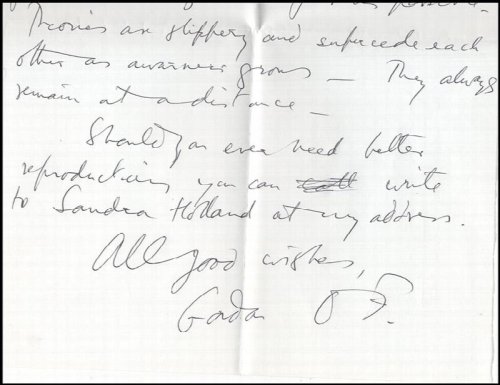 Ironies are slippery and supercede each
other as awareness grows — They always
remain at a distance —
Should you ever need better
reproductions you can write
to Sandra Holland at my address.
All good wishes,
Gordon O F.